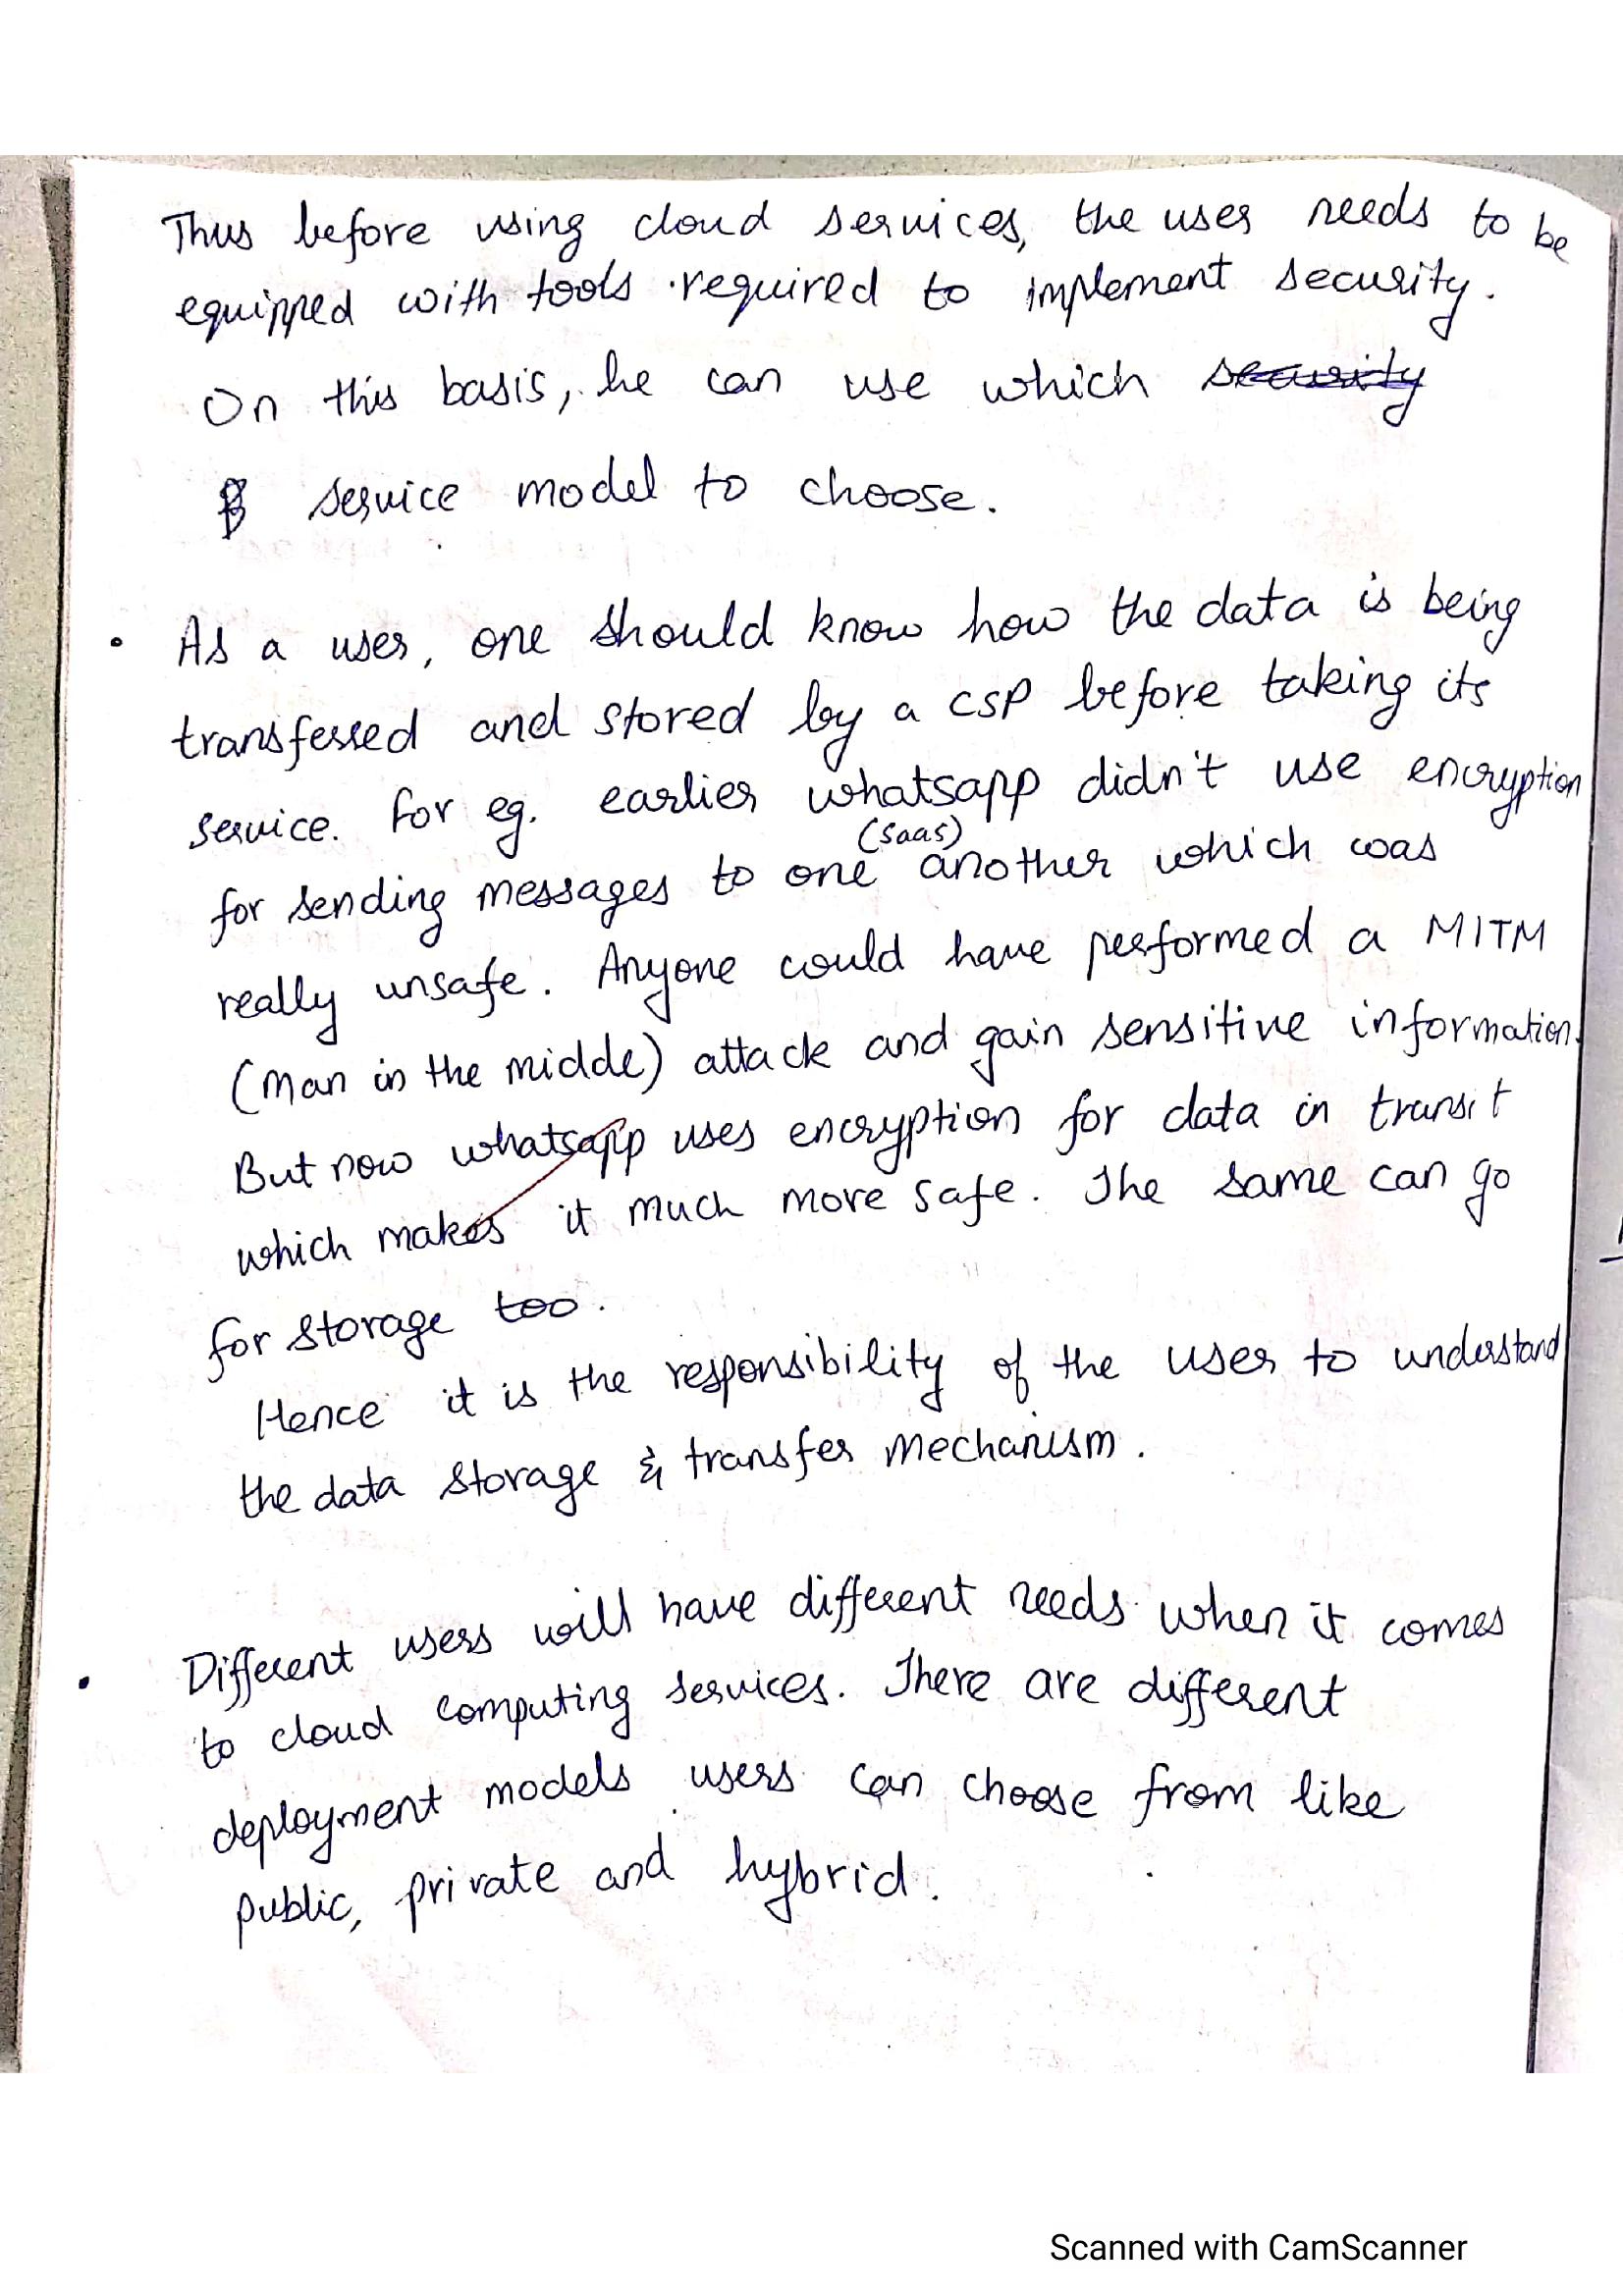 Thus before using cloud services, the user needs to be
equipped with tools required to implement security.
On this basis, he can use which security
service model to choose.
• As a user, one should know how the data is being
transferred and stored by a CSP before taking its
service. For eg. earlier whatsapp didn't use encryption
(saas)
for sending messages to one another which was
really unsafe. Anyone could have performed a MITM
(Man in the midde) attack and gain sensitive information.
But now whatsapp uses encryption for data in transit
which makes it much more safe. The same can go
for storage too.
Hence it is the responsibility of the user to understand
the data storage & transfer mechanism.
• Different users will have different needs when it comes
to cloud computing services. There are different
deployment models users can choose from like
public, private and hybrid.
Scanned with CamScanner